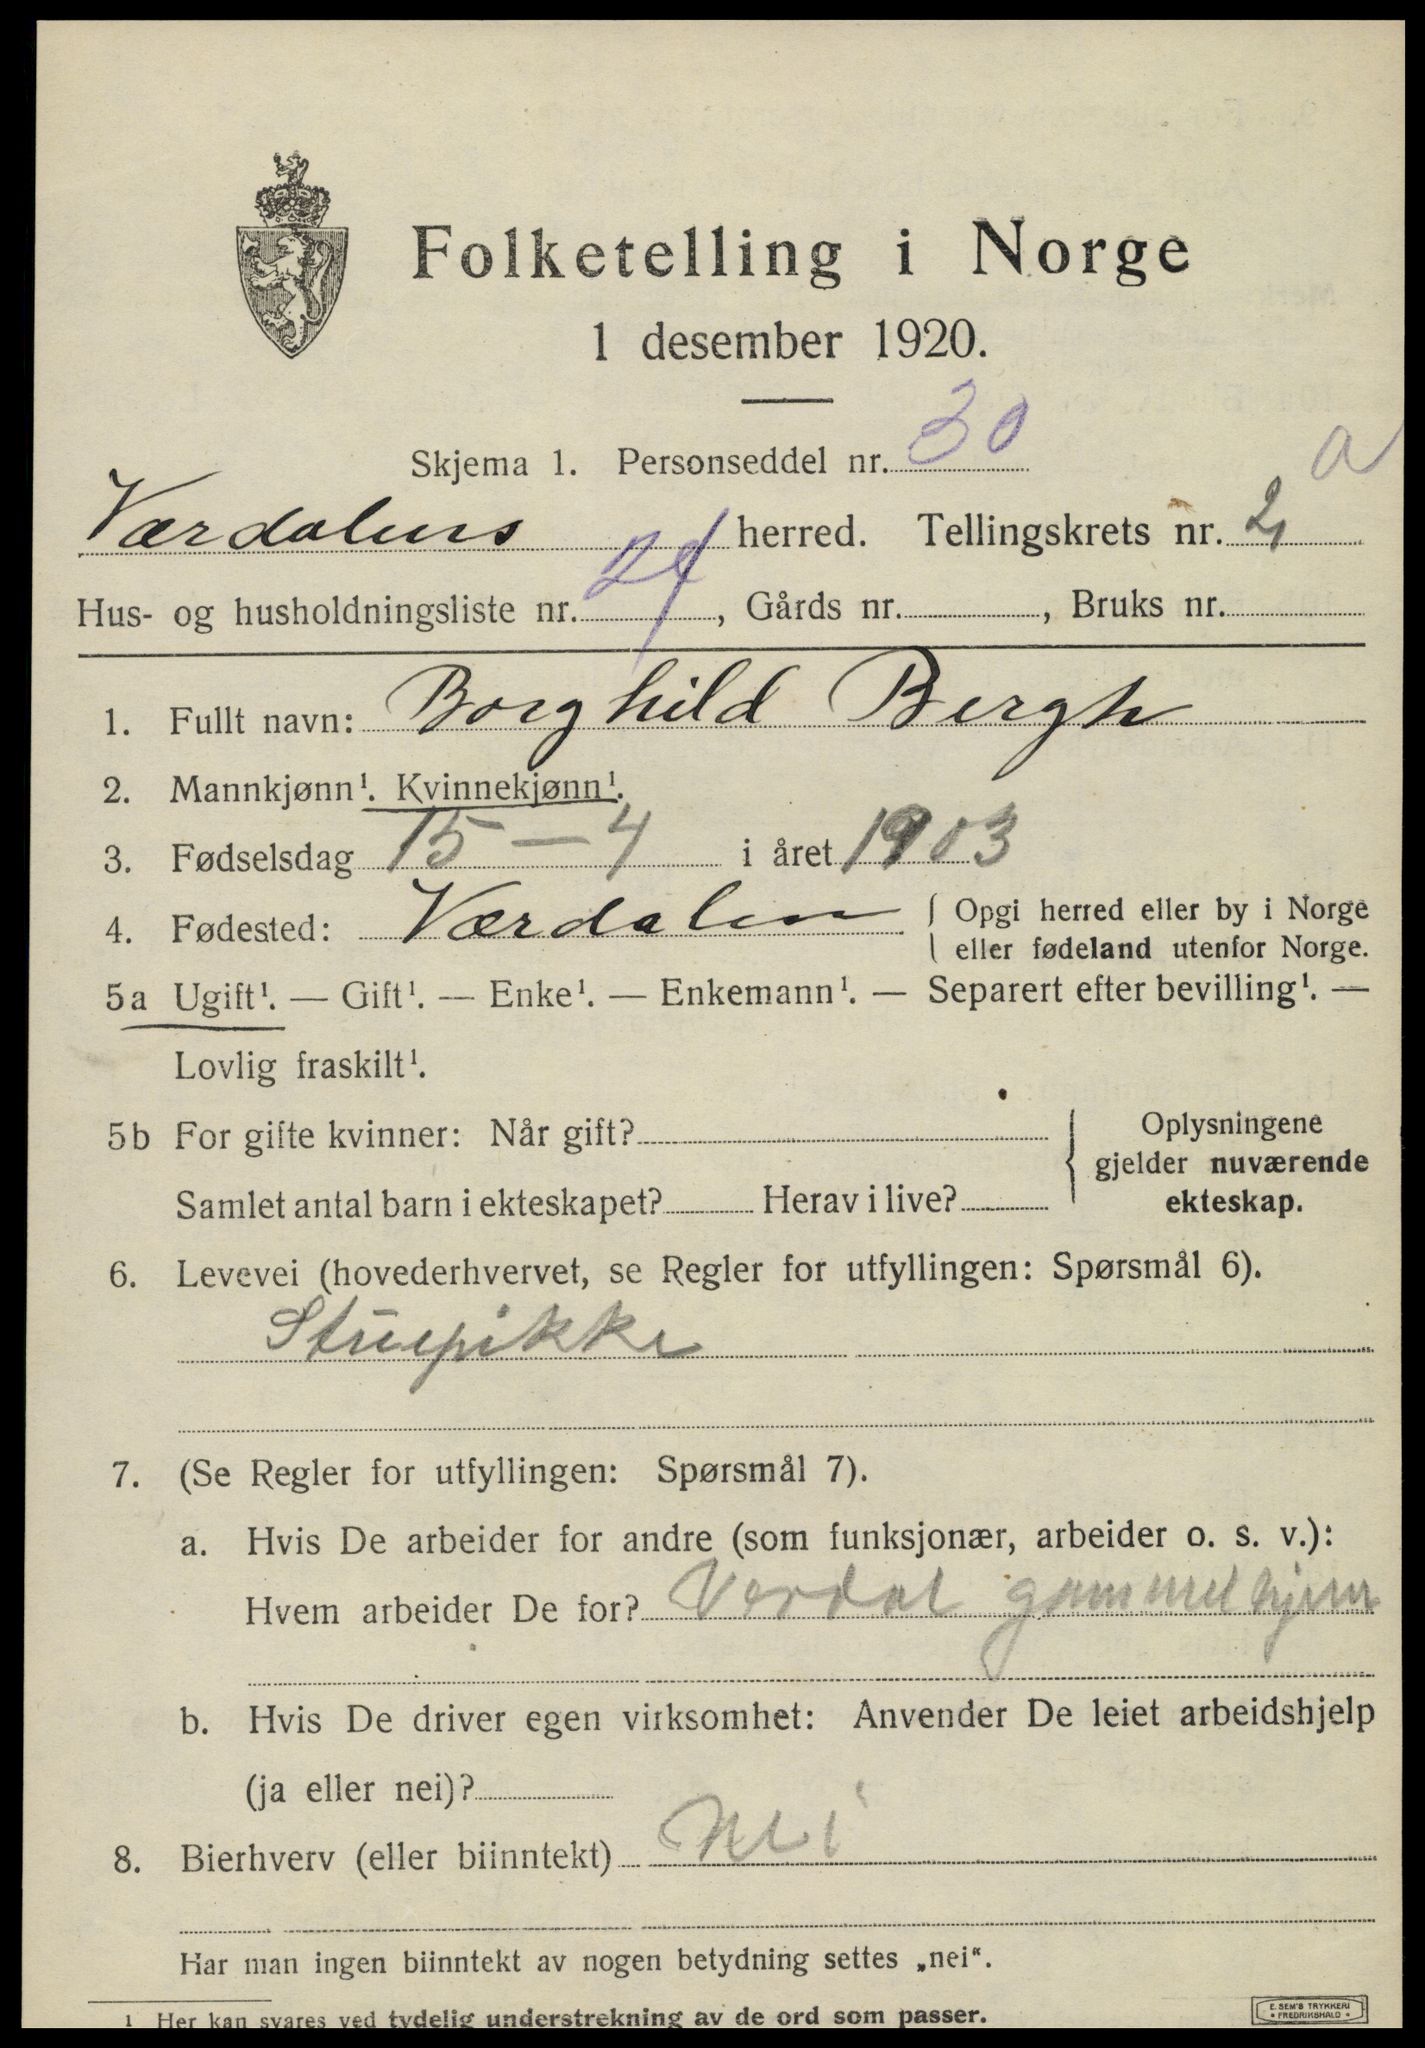 Folketelling i Norge
1 desember 1920.
Skjema 1. Personseddel nr. 30
a
Værdalens herred. Tellingskrets nr. 2
Hus- og husholdningsliste nr. 24, Gårds nr. , Bruks nr.
1. Fullt navn: Borghild Bergh
2. Mannkjønn¹. Kvinnekjønn¹.
3. Fødselsdag 15 – 4 i året 1903
4. Fødested: Værdalen { Opgi herred eller by i Norge
eller fødeland utenfor Norge.
5a Ugift¹. — Gift¹. — Enke¹. — Enkemann¹. — Separert efter bevilling¹. —
Lovlig fraskilt¹.
5b For gifte kvinner: Når gift?
Samlet antal barn i ekteskapet? Herav i live?
{ Oplysningene
gjelder nuværende
ekteskap.
6. Levevei (hovederhvervet, se Regler for utfyllingen: Spørsmål 6).
Stuepikke
7. (Se Regler for utfyllingen: Spørsmål 7).
a. Hvis De arbeider for andre (som funksjonær, arbeider o. s. v.):
Hvem arbeider De for? Verdal gammelhjem
b. Hvis De driver egen virksomhet: Anvender De leiet arbeidshjelp
(ja eller nei)?
8. Bierhverv (eller biinntekt) Nei
Har man ingen biinntekt av nogen betydning settes „nei“.
¹ Her kan svares ved tydelig understrekning av de ord som passer.
E. SEM'S TRYKKERI
• FREDRIKSHALD •